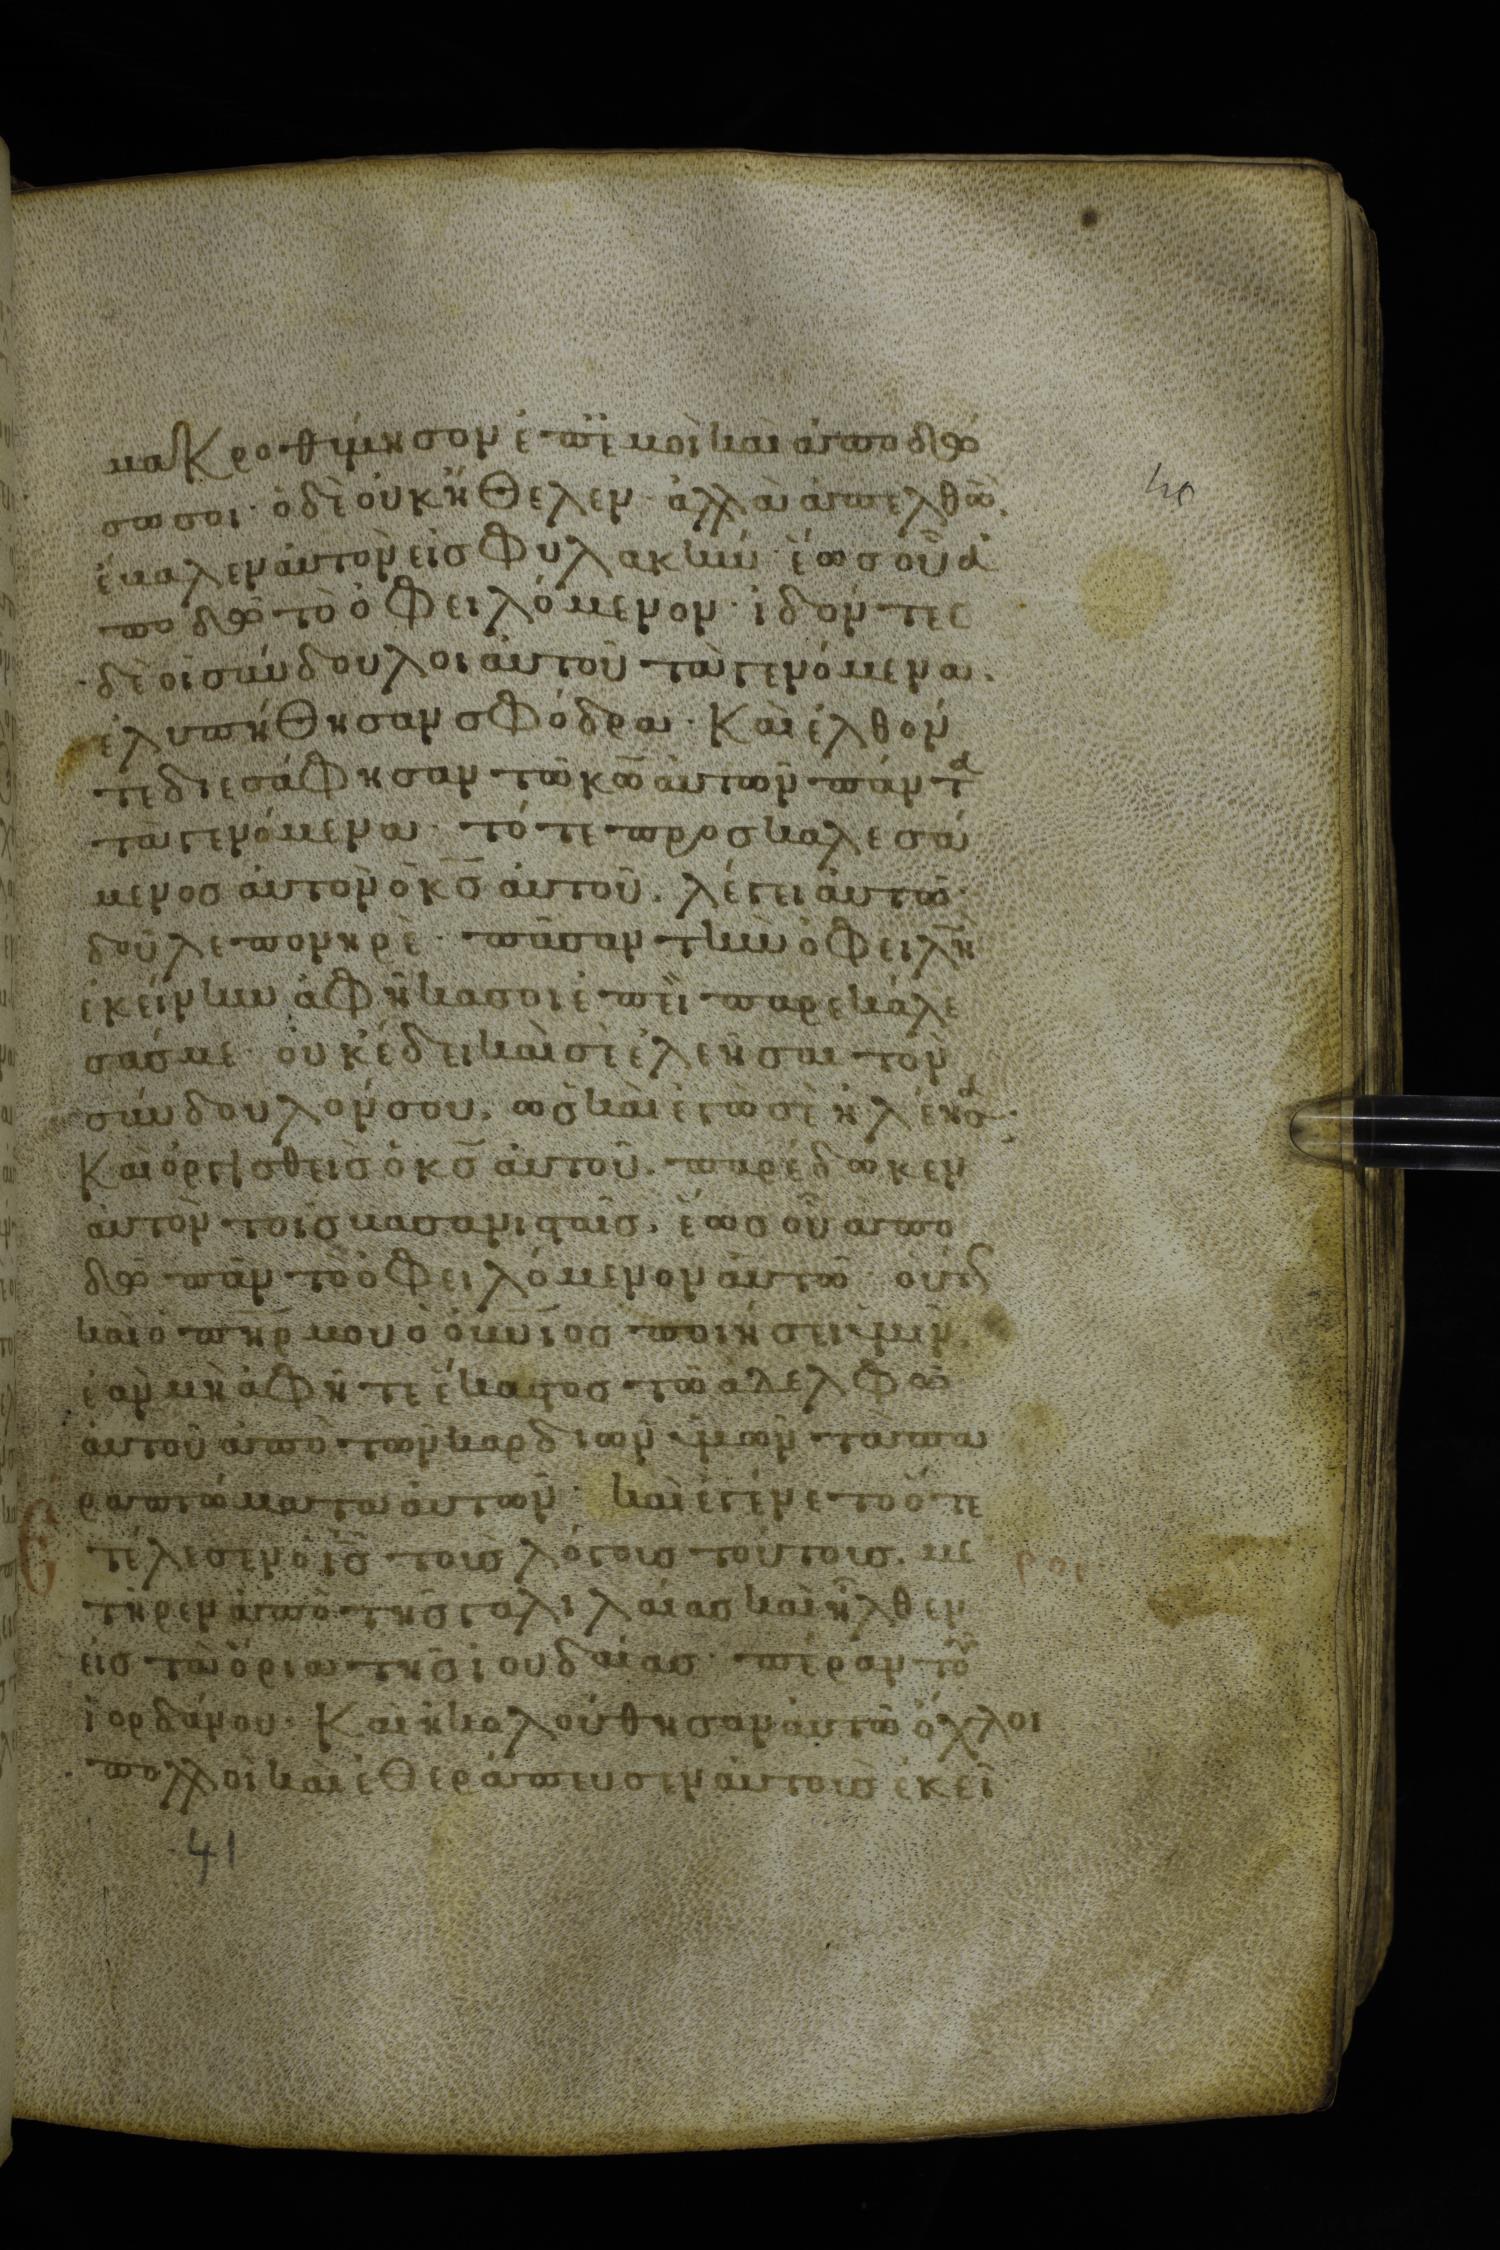 μακροθύμησον ἐπ' ἐμοὶ καὶ ἀποδώ
40
σω σοι· ὁ δὲ οὐκ ἤθελεν· ἀλλὰ ἀπελθὼ
ἔβαλεν αὐτὸν εἰσ φυλακὴν· ἕωσ οὗ ἀ
ποδῶ τὸ ὀφειλόμενον· ἰδόντεσ
δὲ οἱ σύνδουλοι αὐτοῦ τὰ γενόμενα·
ἐλυπήθησαν σφόδρα· Καὶ ἐλθόν
τε διεσάφησαν τῶ κω̅ αὐτῶν πάντα
τὰ γενόμενα· τότε προσκαλεσά
μενοσ αὐτὸν ὁ κσ̅ αὐτοῦ· λέγει αὐτῶ·
δοῦλε πονηρὲ· πᾶσαν τὴν ὀφειλὴ
ἐκείνην ἀφῆκα σοι ἐπεὶ παρεκάλε
σάσ με· οὐκ ἔδει καὶ σὲ ἐλεῆσαι τὸν
σύνδουλόν σου· ὡσ καὶ ἐγὼ σὲ ἠλέησα·
Καὶ ὀργισθεὶσ ὁ κσ̅ αὐτοῦ· παρέδωκεν
αὐτὸν τοῖσ βασανισταῖσ· ἕωσ οὗ ἀπο
δῶ πᾶν τὸ ὀφειλόμενον αὐτῶ· οὕτωσ
καὶ ὁ πη̅ρ μου ὁ οὐ̅νιοσ ποιήσει ὑμῖν·
ἐὰν μὴ ἀφῆτε ἕκαστοσ τῶ ἀδελφῶ
αὐτοῦ ἀπὸ τῶν καρδιῶν ὑμῶν τὰ πα
ραπτώματα αὐτῶν· καὶ ἐγένετο ὅτε
ἐτέλεσεν ὁ ισ̅ τοὺσ λόγουσ τούτουσ· με
τῆρεν ἀπὸ τῆσ γαλιλαίασ καὶ ἦλθεν
εἰσ τὰ ὅρια τῆσ ἰουδαίασ· πέραν τοῦ
ἰορδάνου· Καὶ ἠκολούθησαν αὐτῶ ὄχλοι
πολλοὶ καὶ ἐθεράπευσεν αὐτοὺσ ἐκεῖ
41